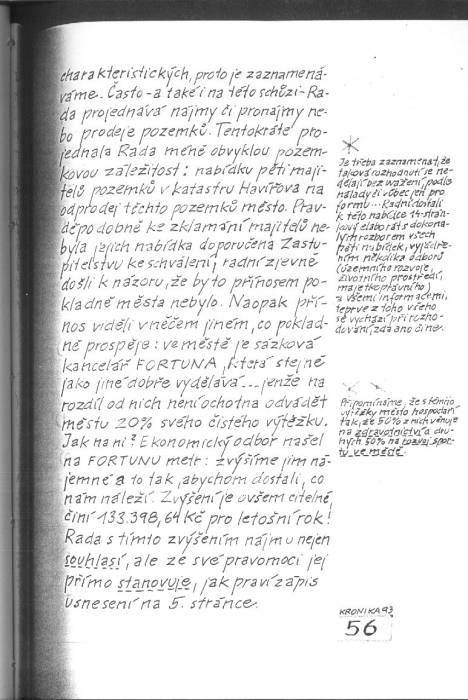 charakteristických, proto je zaznamená-
váme. Často - a také i na této schůzi - Ra-
da projednává nájmy či pronájmy ne-
bo prodeje pozemků. Tentokráte pro-
jednala Rada méně obvyklou pozem-
kovou záležitost: nabídku pěti maji-
telů pozemků v katastru Havířova na
odprodej těchto pozemků město. Prav-
děpodobně ke zklamání majitelů ne-
byla jejich nabídka doporučena Zastu-
pitelstvu ke schválení, radní zjevně
došli k názoru, že by to přínosem po-
kladně města nebylo. Naopak pří-
nos viděli v něčem jiném, co poklad-
ně prospěje: ve městě je sázková
kancelář FORTUNA, která stejně
jako jiné dobře vydělává... jenže na
rozdíl od nich není ochotna odvádět
městu 20% svého čistého výtěžku.
Jak na ni? Ekonomický odbor našel
na FORTUNU metr: zvýšíme jim ná-
jemné a to tak, abychom dostali, co
nám náleží. Zvýšení je ovšem citelné,
činí 133.398,64 Kč pro letošní rok!
Rada s tímto zvýšením nájmu nejen
souhlasí, ale ze své pravomoci jej
přímo stanovuje, jak praví zápis
usnesení na 5. stránce.
Je třeba zaznamenat, že
taková rozhodnutí se ne-
dělají bez vážení, podle
nálady či vůbec jen pro
formu... Radní dostali
k této nabídce 14-strán-
kový elaborát s dokona-
lým rozborem všech
pěti nabídek, vyjádře-
ním několika odborů
(územního rozvoje,
životního prostředí,
majetkoprávního)
a všemi informacemi,
teprve z toho všeho
se vychází při rozho-
dování, zda ano či ne.
Připomínáme, že s těmito
výtěžky město hospodaří
tak, že 50% z nich věnuje
na zdravotnictví a dru-
hých 50% na rozvoj spor-
tu ve městě.
KRONIKA 93
56